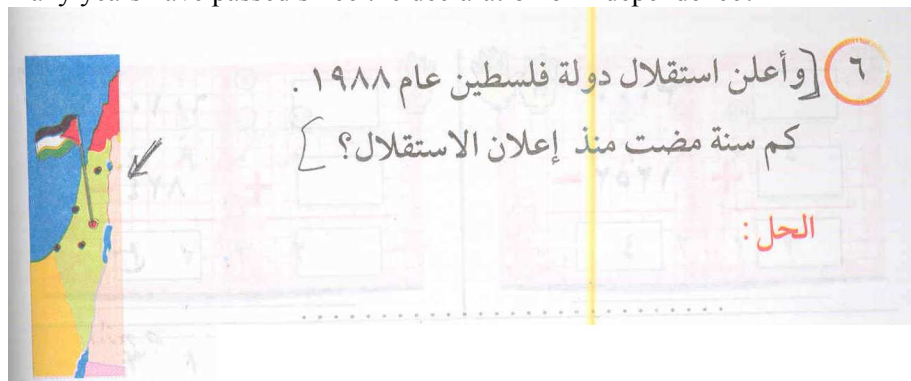 ٦ [وأعلن استقلال دولة فلسطين عام ١٩٨٨ .
كم سنة مضت منذ إعلان الاستقلال؟ ]
الحل: